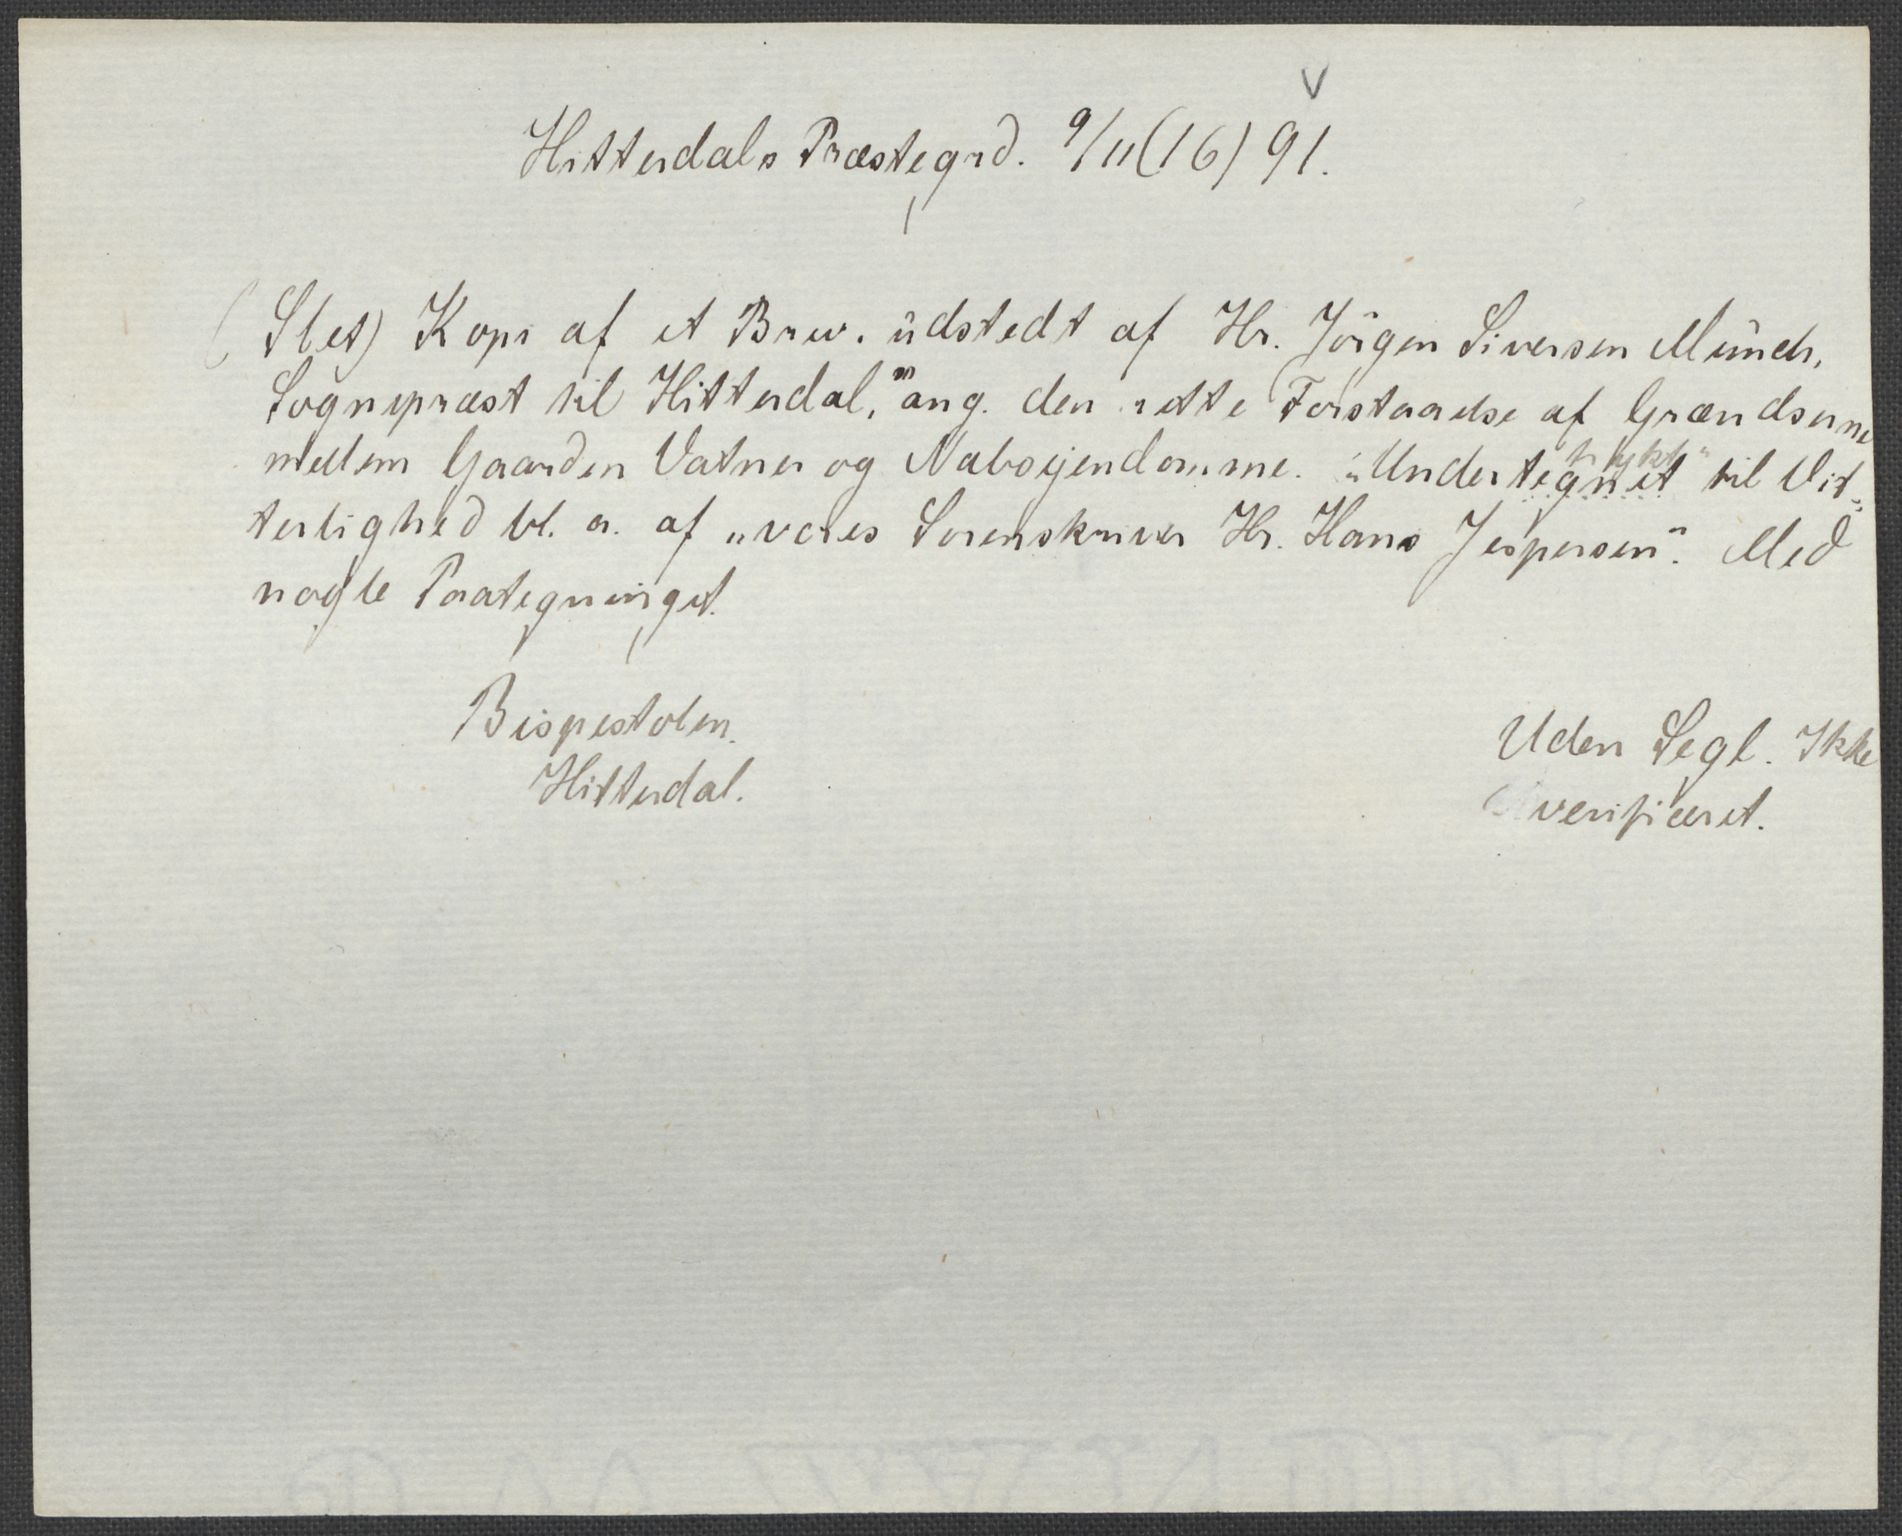 V
Hitterdals Præstegrd. 9/11 (16) 91.
(Slet) Kopi af et Brev. udstedt af Hr. Jörgen Siversen Münch,
Sognepræst til Hitterdal, ang. den rette Forstaaelse af Grændserne
mellem Gaarden Vatner og Naboejendomme. "Undertegnet trykt" til Vit-
terlighed bl. a. af "vores Sorenskriver Hr. Hans Jespersen". Med
nogle Paategninger.
Bispestolen.
Hitterdal.
Uden Segl. Ikke
verificeret.